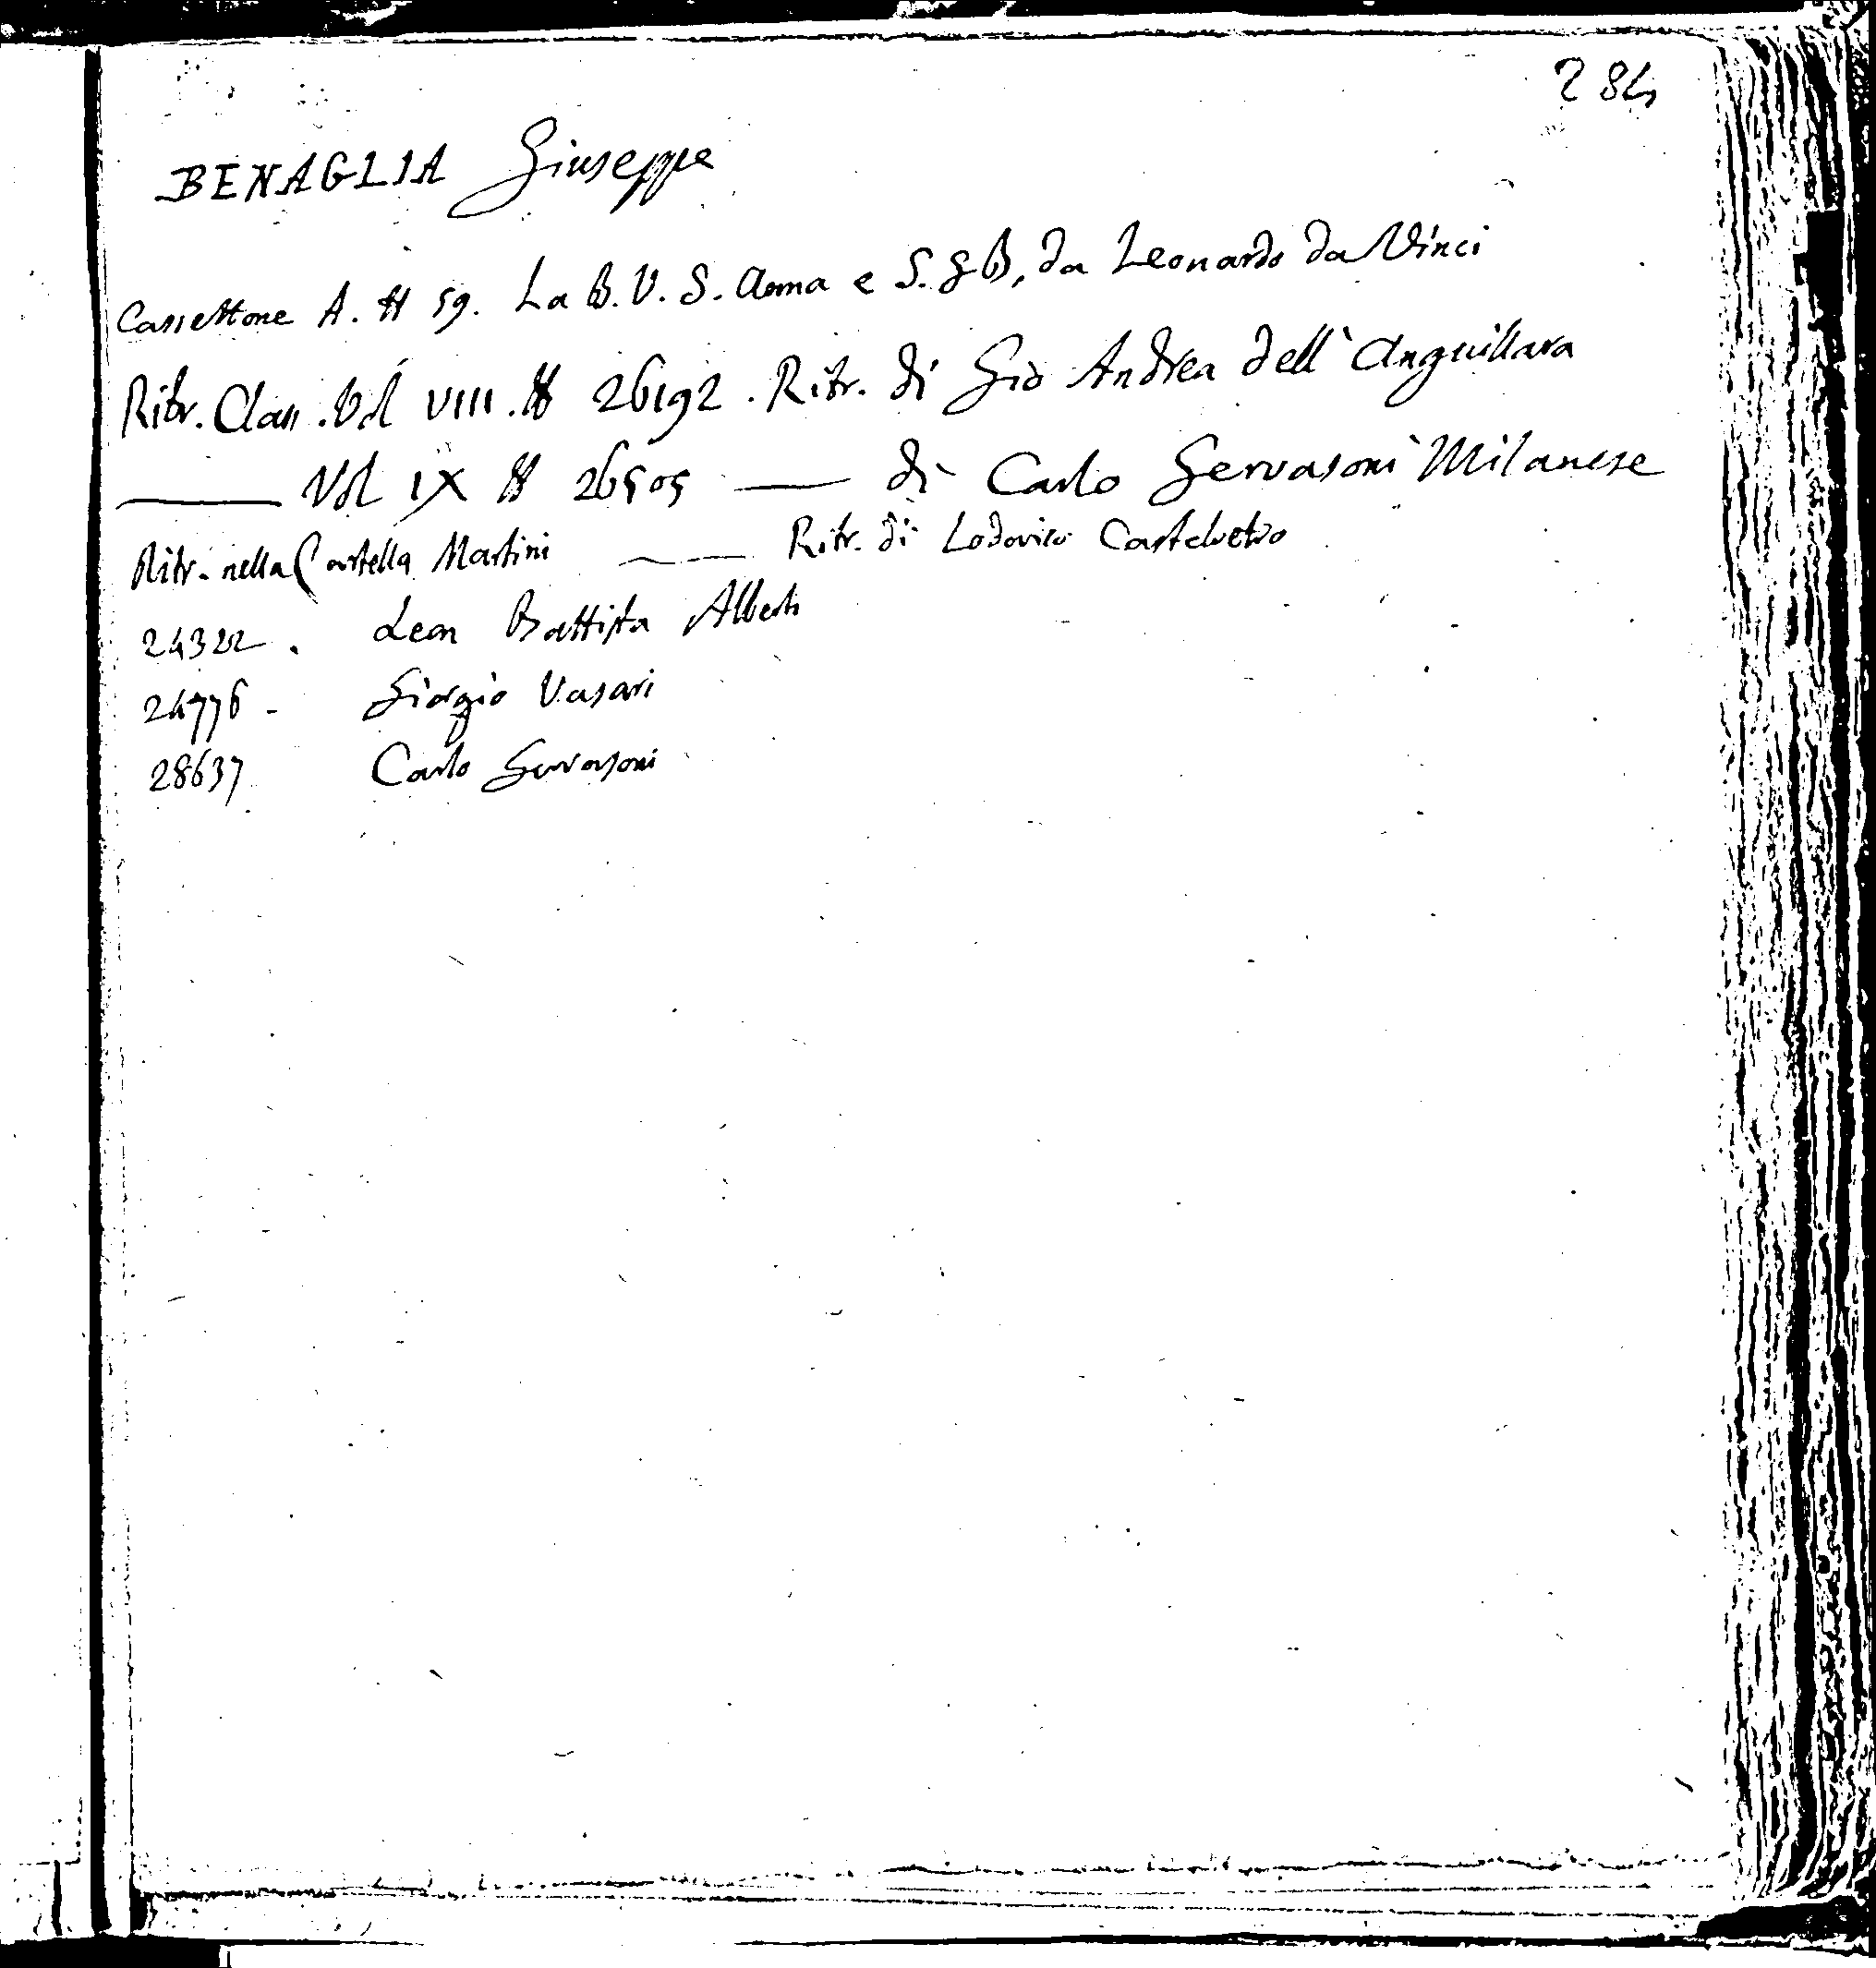 284
BENAGLIA Giuseppe
Cassettone A. # 59. La B. V. S. Anna e S. GB, da Leonardo da Vinci
Ritr. Class. Vol VIII. # 26192. Ritr. di Gio Andrea dell'Anguillara
——— Vol IX # 26505 —— di Carlo Gervasoni Milanese
Ritr. nella Cartella Martini ——— Ritr. di Lodovico Castelvetro
24322. Leon Battista Alberti
24776 - Giorgio Vasari
28637 Carlo Gervasoni